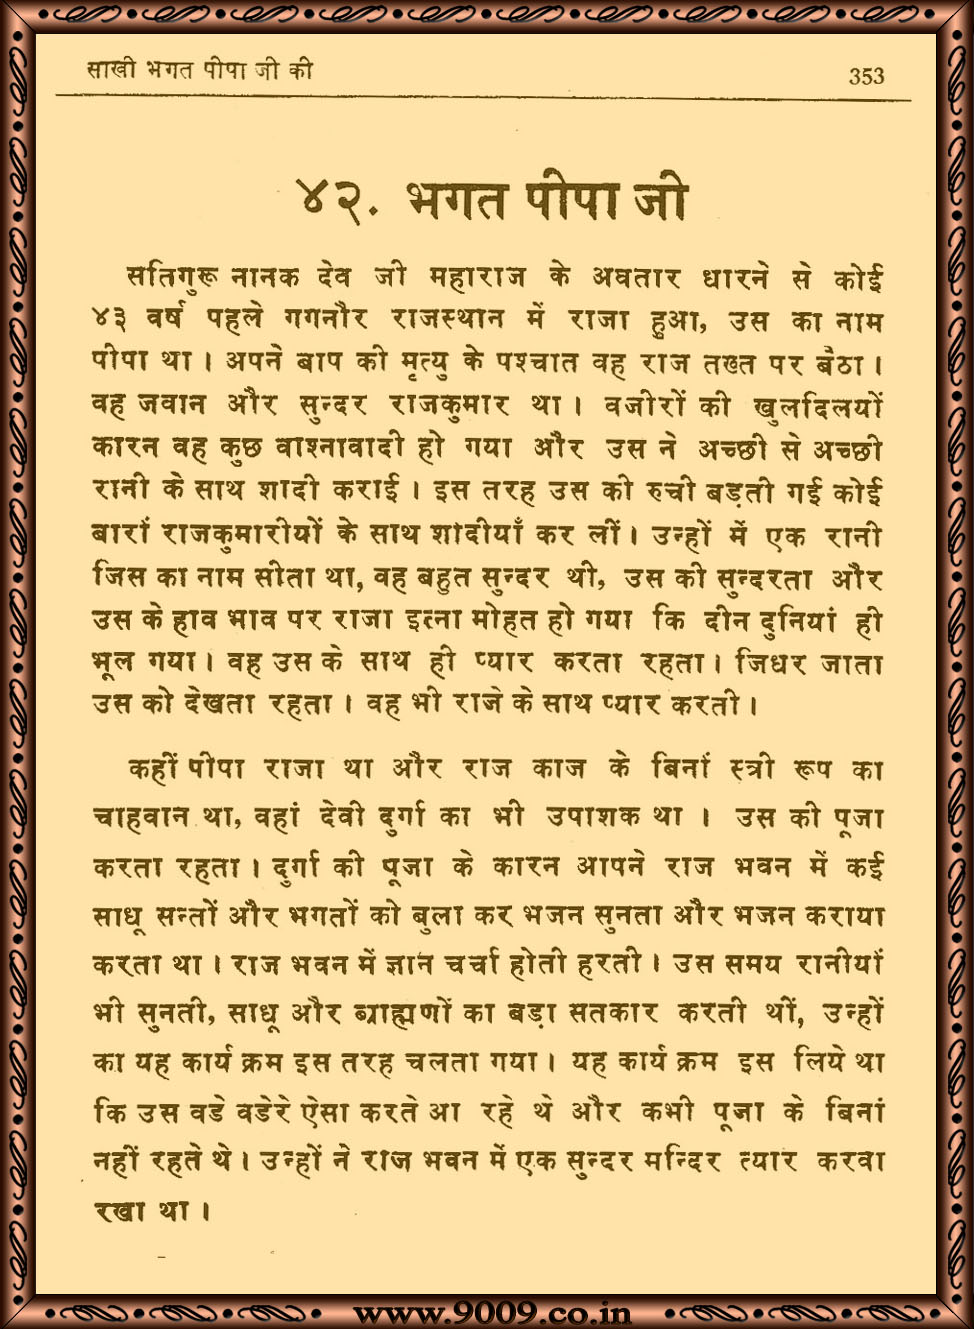 साखी भगत पीपा जी की
353
४२. भगत पीपा जी
सतिगुरू नानक देव जी महाराज के अवतार धारने से कोई
४३ वर्ष पहले गगनौर राजस्थान में राजा हुआ, उस का नाम
पीपा था । अपने बाप की मृत्यु के पश्चात वह राज तख्त पर बैठा ।
वह जवान और सुन्दर राजकुमार था । वजीरों की खुलदिलयों
कारन वह कुछ वाश्नावादी हो गया और उस ने अच्छी से अच्छी
रानी के साथ शादी कराई । इस तरह उस की रुची बड़ती गई कोई
बारां राजकुमारीयों के साथ शादीयाँ कर लीं । उन्हों में एक रानी
जिस का नाम सीता था, वह बहुत सुन्दर थी, उस की सुन्दरता और
उस के हाव भाव पर राजा इत्ना मोहत हो गया कि दीन दुनियां ही
भूल गया । वह उस के साथ ही प्यार करता रहता । जिधर जाता
उस को देखता रहता । वह भी राजे के साथ प्यार करती ।
कहीं पीपा राजा था और राज काज के बिनां स्त्री रूप का
चाहवान था, वहां देवी दुर्गा का भी उपाशक था । उस की पूजा
करता रहता । दुर्गा की पूजा के कारन आपने राज भवन में कई
साधू सन्तों और भगतों को बुला कर भजन सुनता और भजन कराया
करता था । राज भवन में ज्ञान चर्चा होती हरती । उस समय रानीयां
भी सुनती, साधू और ब्राह्मणों का बड़ा सतकार करती थीं, उन्हों
का यह कार्य क्रम इस तरह चलता गया । यह कार्य क्रम इस लिये था
कि उस वडे वडेरे ऐसा करते आ रहे थे और कभी पूजा के बिनां
नहीं रहते थे । उन्हों ने राज भवन में एक सुन्दर मन्दिर त्यार करवा
रखा था ।
www.9009.co.in